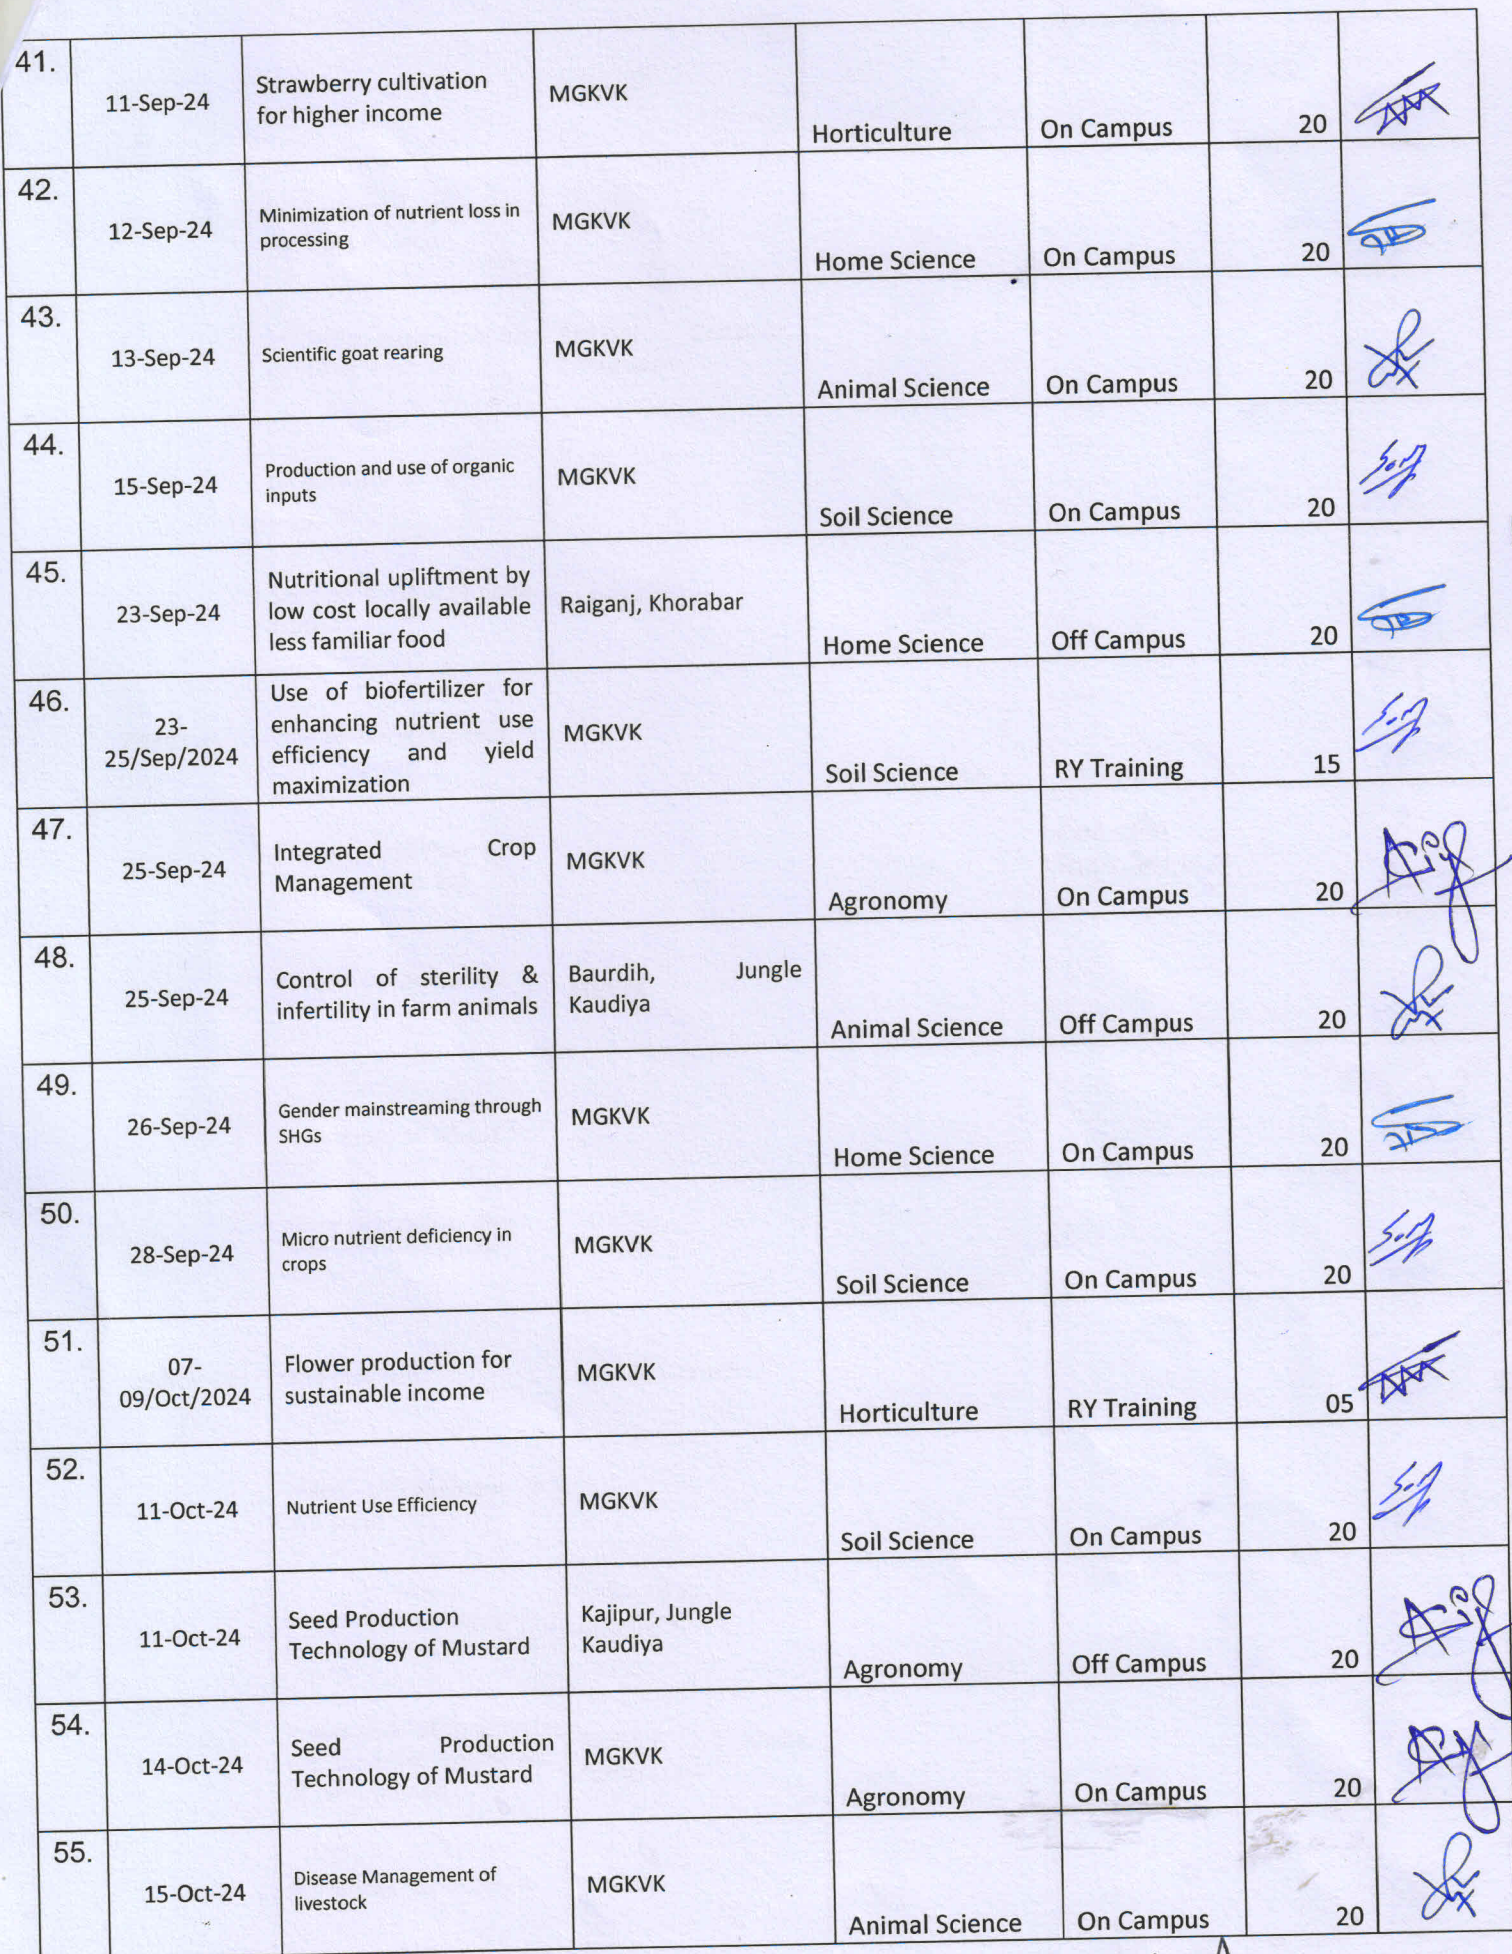 41.
11-Sep-24
Strawberry cultivation
for higher income
MGKVK
Horticulture
On Campus
20
42.
12-Sep-24
Minimization of nutrient loss in
processing
MGKVK
Home Science
On Campus
20
43.
13-Sep-24
Scientific goat rearing
MGKVK
Animal Science
On Campus
20
44.
15-Sep-24
Production and use of organic
inputs
MGKVK
Soil Science
On Campus
20
45.
23-Sep-24
Nutritional upliftment by
low cost locally available
less familiar food
Raiganj, Khorabar
Home Science
Off Campus
20
46.
23-
25/Sep/2024
Use of biofertilizer for
enhancing nutrient use
efficiency and yield
maximization
MGKVK
Soil Science
RY Training
15
47.
25-Sep-24
Integrated Crop
Management
MGKVK
Agronomy
On Campus
20
48.
25-Sep-24
Control of sterility &
infertility in farm animals
Baurdih, Jungle
Kaudiya
Animal Science
Off Campus
20
49.
26-Sep-24
Gender mainstreaming through
SHGs
MGKVK
Home Science
On Campus
20
50.
28-Sep-24
Micro nutrient deficiency in
crops
MGKVK
Soil Science
On Campus
20
51.
07-
09/Oct/2024
Flower production for
sustainable income
MGKVK
Horticulture
RY Training
05
52.
11-Oct-24
Nutrient Use Efficiency
MGKVK
Soil Science
On Campus
20
53.
11-Oct-24
Seed Production
Technology of Mustard
Kajipur, Jungle
Kaudiya
Agronomy
Off Campus
20
54.
14-Oct-24
Seed Production
Technology of Mustard
MGKVK
Agronomy
On Campus
20
55.
15-Oct-24
Disease Management of
livestock
MGKVK
Animal Science
On Campus
20